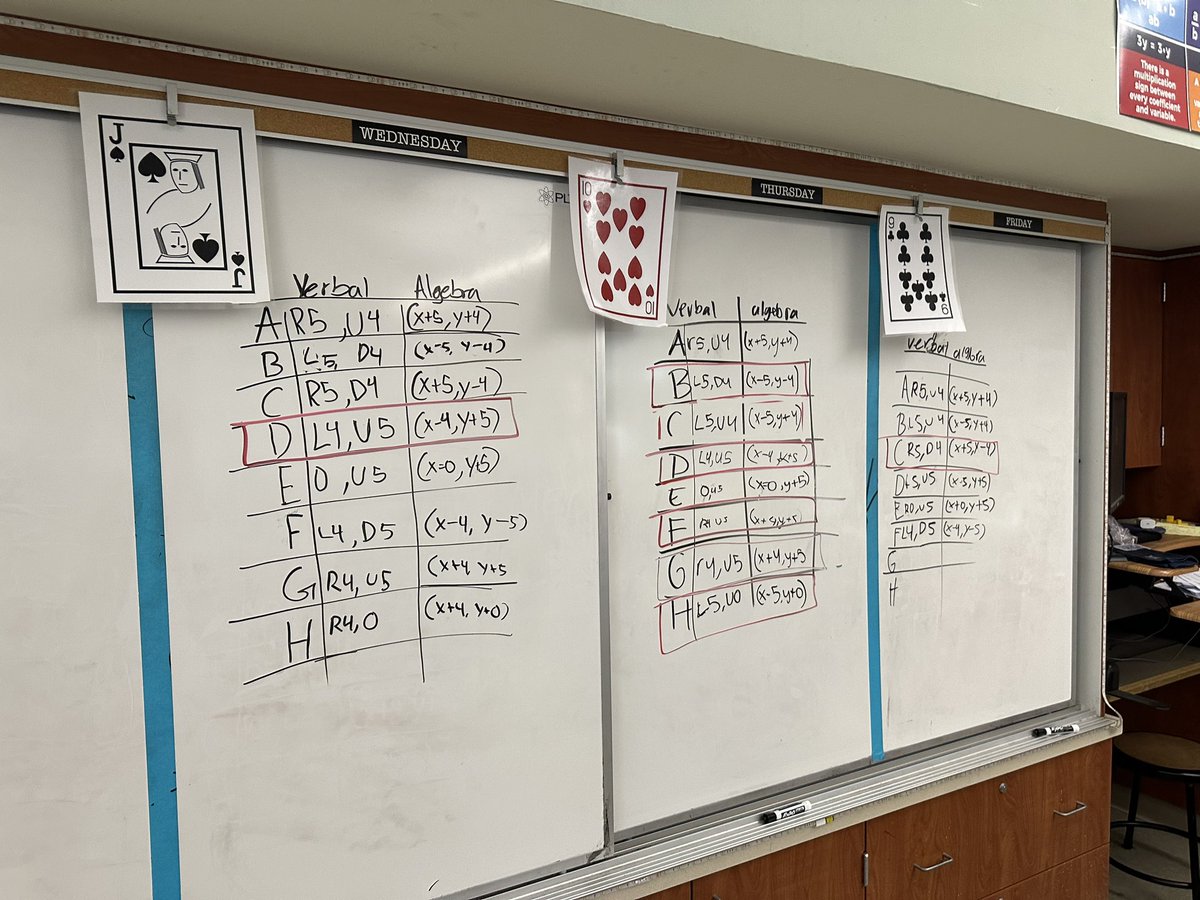 WEDNESDAY
THURSDAY
FRIDAY
ab
3y = 3·y
There is a
multiplication
sign between
every coefficient
and variable.
a
b
J
J
PL
10
10
9
9
Verbal Algebra
A R5, U4 (x+5, y+4)
B L5, D4 (x-5, y-4)
C R5, D4 (x+5, y-4)
D L4, U5 (x-4, y+5)
E 0, U5 (x=0, y+5)
F L4, D5 (x-4, y-5)
G R4, U5 (x+4 y+5
H R4, 0 (x+4, y+0)
Verbal algebra
A r5, U4 (x+5, y+4)
B L5, D4 (x-5, y-4)
C L5, U4 (x-5, y+4)
D L4, U5 (x-4, y+5)
E 0, U5 (x=0, y+5)
F R4 U5 (x+4, y+5)
G r4, U5 (x+4, y+5
H L5, U0 (x-5, y+0)
verbal algbra
A R5, U4 (x+5, y+4)
B L5, U4 (x-5, y+4)
C R5, D4 (x+5, y-4)
D L5, U5 (x-5, y+5)
E R0, U5 (x+0, y+5)
F L4, D5 (x-4, y-5)
G
H